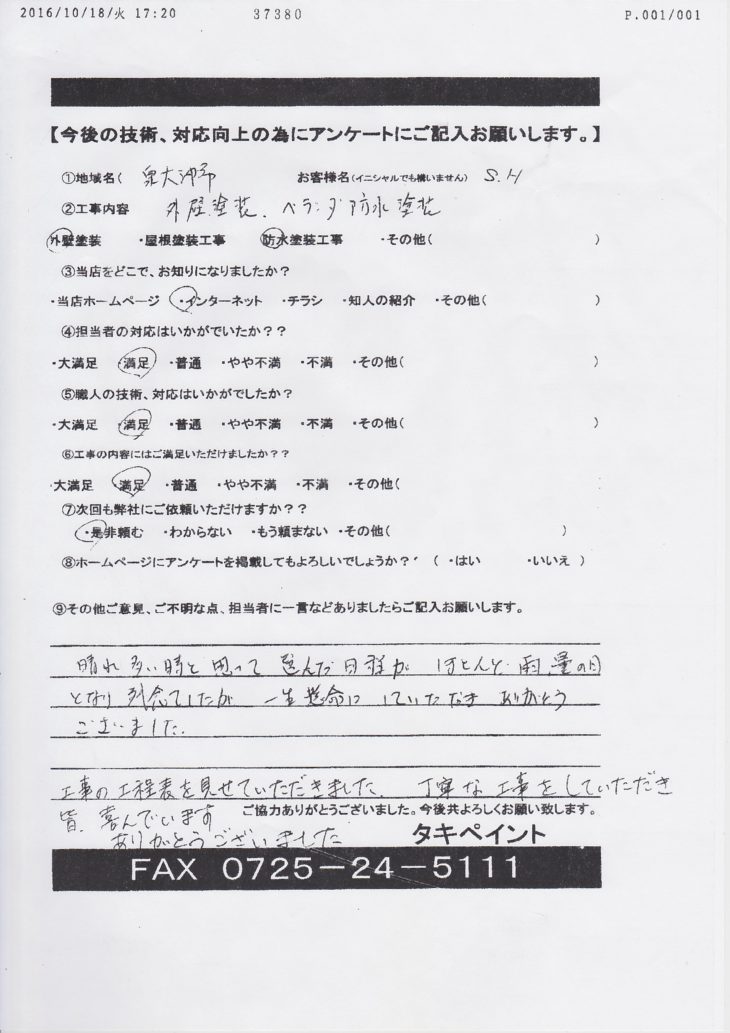 2016/10/18/火 17:20 37380 P.001/001
【今後の技術、対応向上の為にアンケートにご記入お願いします。】
①地域名( 泉大津市 お客様名(イニシャルでも構いません) S.H
②工事内容 外壁塗装、ベランダ防水塗装
外壁塗装 ・屋根塗装工事 防水塗装工事 ・その他( )
③当店をどこで、お知りになりましたか？
・当店ホームページ ・インターネット ・チラシ ・知人の紹介 ・その他( )
④担当者の対応はいかがでいたか？？
・大満足 ・満足 ・普通 ・やや不満 ・不満 ・その他( )
⑤職人の技術、対応はいかがでしたか？
・大満足 ・満足 ・普通 ・やや不満 ・不満 ・その他( )
⑥工事の内容にはご満足いただけましたか？？
・大満足 ・満足 ・普通 ・やや不満 ・不満 ・その他(
⑦次回も弊社にご依頼いただけますか？？
・是非頼む ・わからない ・もう頼まない ・その他( )
⑧ホームページにアンケートを掲載してもよろしいでしょうか？ ( ・はい ・いいえ )
⑨その他ご意見、ご不明な点、担当者に一言などありましたらご記入お願いします。
晴れ多い時と思って 選んだ日程が ほとんど 雨、曇の日
となり 残念でしたが 一生懸命に していただき ありがとう
ございました。
工事の工程表を見せていただきました。 丁寧な工事をしていただき
皆、喜んでいます
ご協力ありがとうございました。今後共よろしくお願い致します。
ありがとうございました
タキペイント
FAX 0725－24－5111